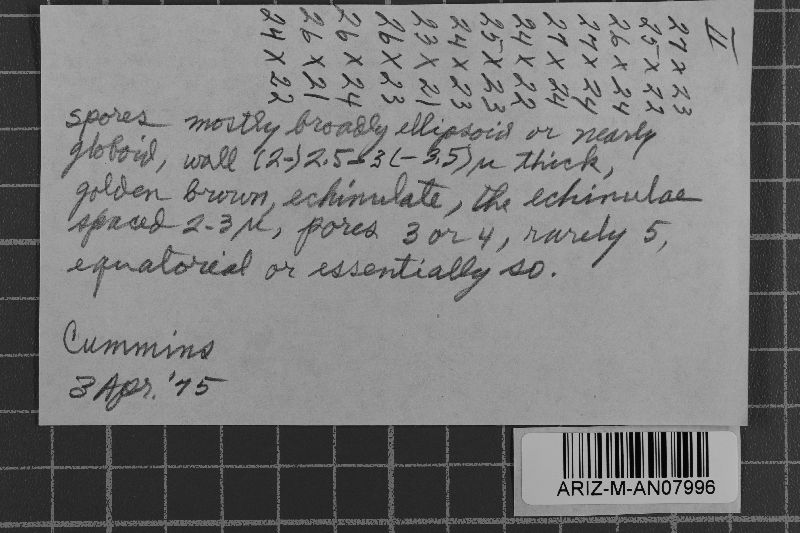 II
27 x 23
25 x 22
26 x 24
27 x 24
27 x 24
24 x 22
25 x 23
24 x 23
23 x 21
26 x 23
26 x 24
26 x 21
24 x 22
spores mostly broadly ellipsoid or nearly
globoid, wall (2-)2.5-3(-3.5)μ thick,
golden brown, echinulate, the echinulae
spaced 2-3μ, pores 3 or 4, rarely 5,
equatorial or essentially so.
Cummins
3 Apr. '75
ARIZ-M-AN07996